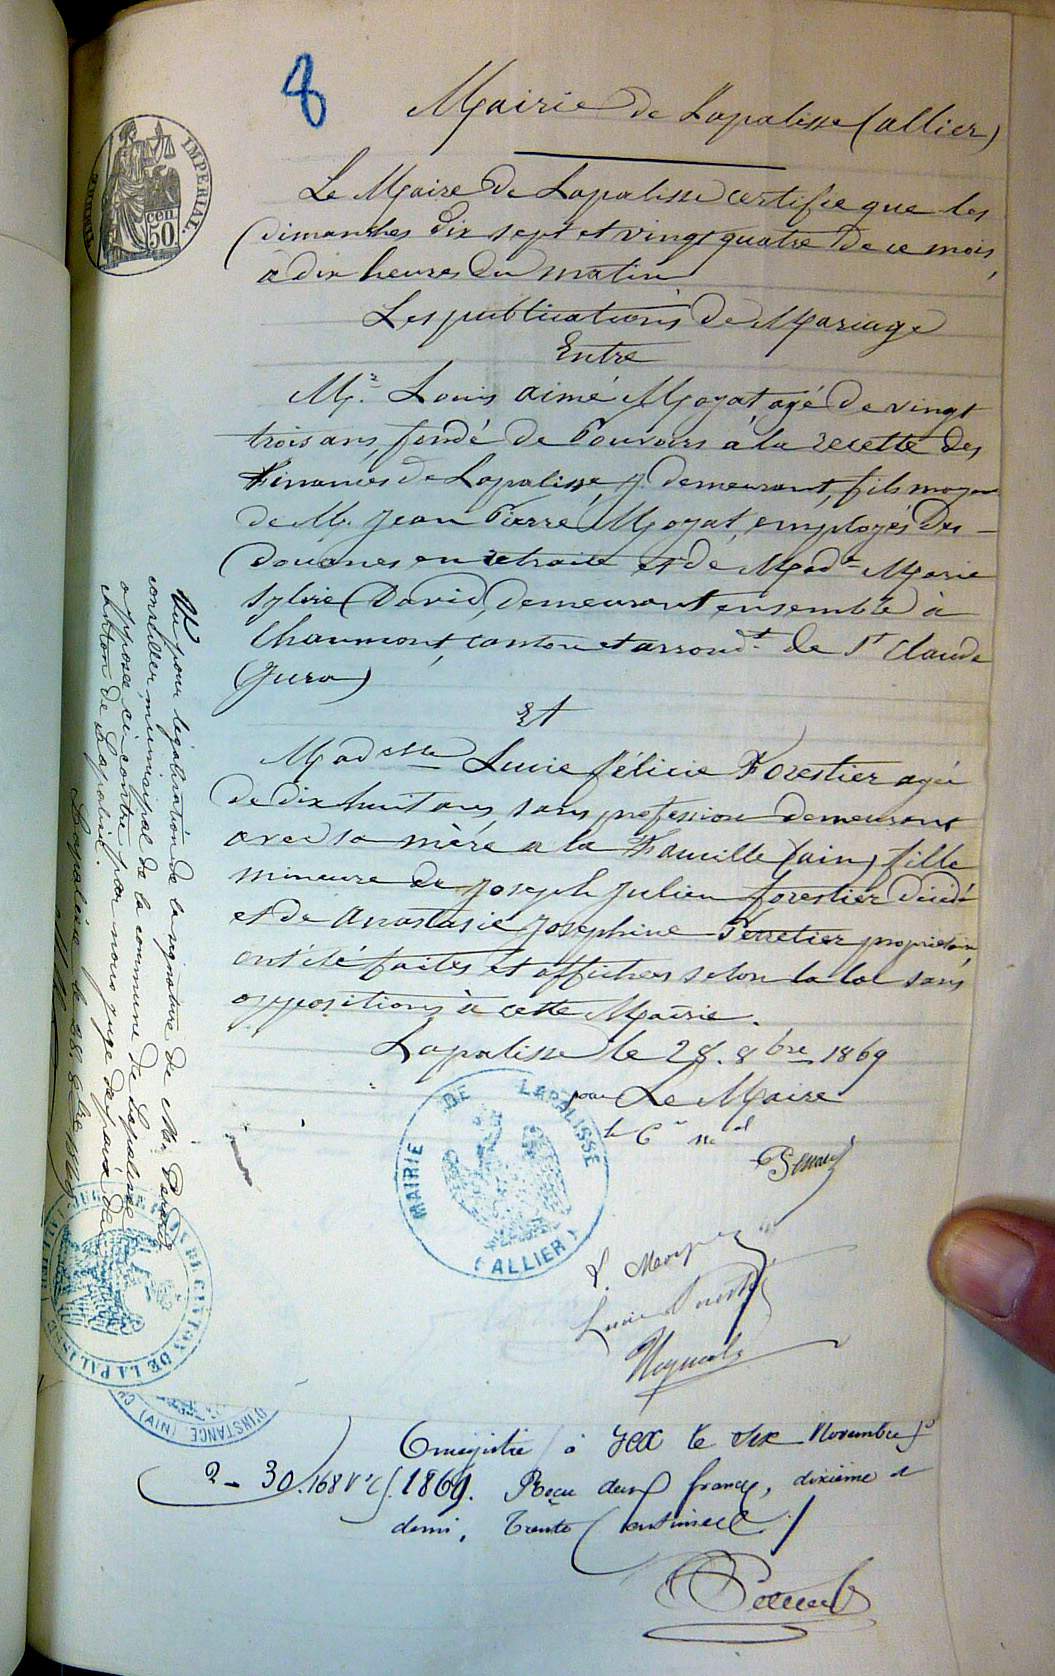 8
Mairie de Lapalisse (allier)
TIMBRE IMPERIAL.
50 cen
Le Maire de Lapalisse certifie que les
dimanches dix sept et vingt quatre de ce mois,
à dix heures du matin
Les publications de Mariage
Entre
Mr. Louis aimé Moyat, agé de vingt
trois ans, fondé de Pouvoirs à la recette des
Finances de Lapalisse, y demeurant, fils majeur
de M. Jean Pierre Moyat, employés des
Douanes en retraite et de Made Marie
Sylvie David, demeurant ensemble à
Chaumont, canton et arrondt de St Claude
(Jura)
Et
Madelle Lucie félicie Forestier agée
de dix huit ans, sans profession demeurant
avec sa mère a la Faucille (ain) fille
mineure de Joseph Julien forestier décédé
et de Anastasie Josephine Perretier propriétaire,
ont été faites et affichées selon la loi sans
oppositions à cette Mairie.
Lapalisse le 28. 8bre 1869
pour Le Maire
le Cer mal
MAIRIE DE LAPALISSE
(ALLIER)
Lucie
Vu pour légalisation de la signature de Mr.
conseiller municipal de la commune de Lapalisse
apposée ci contre, par nous juge de paix du
canton de Lapalisse.
Lapalisse le 28. 8bre 1869
CANTON DE LAPALISSE
D'INSTANCE
(AIN)
Enregistré à Gex le six Novembre
2 - 30. 1869. Reçu deux francs, dixième et
demi, Trente Centimes ./.